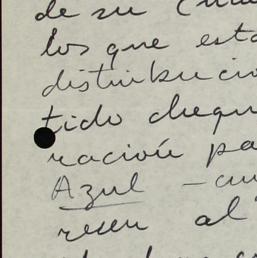 de su
los que esta
distribució
tido chequ
ración pa
Azul -
al